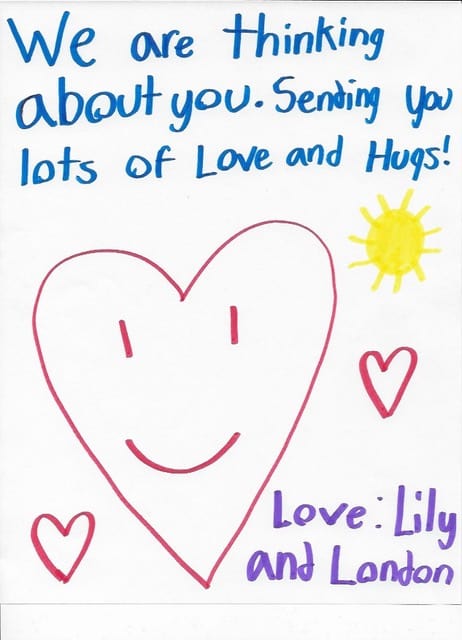 We are thinking
about you. Sending you
lots of Love and Hugs!
Love: Lily
and London